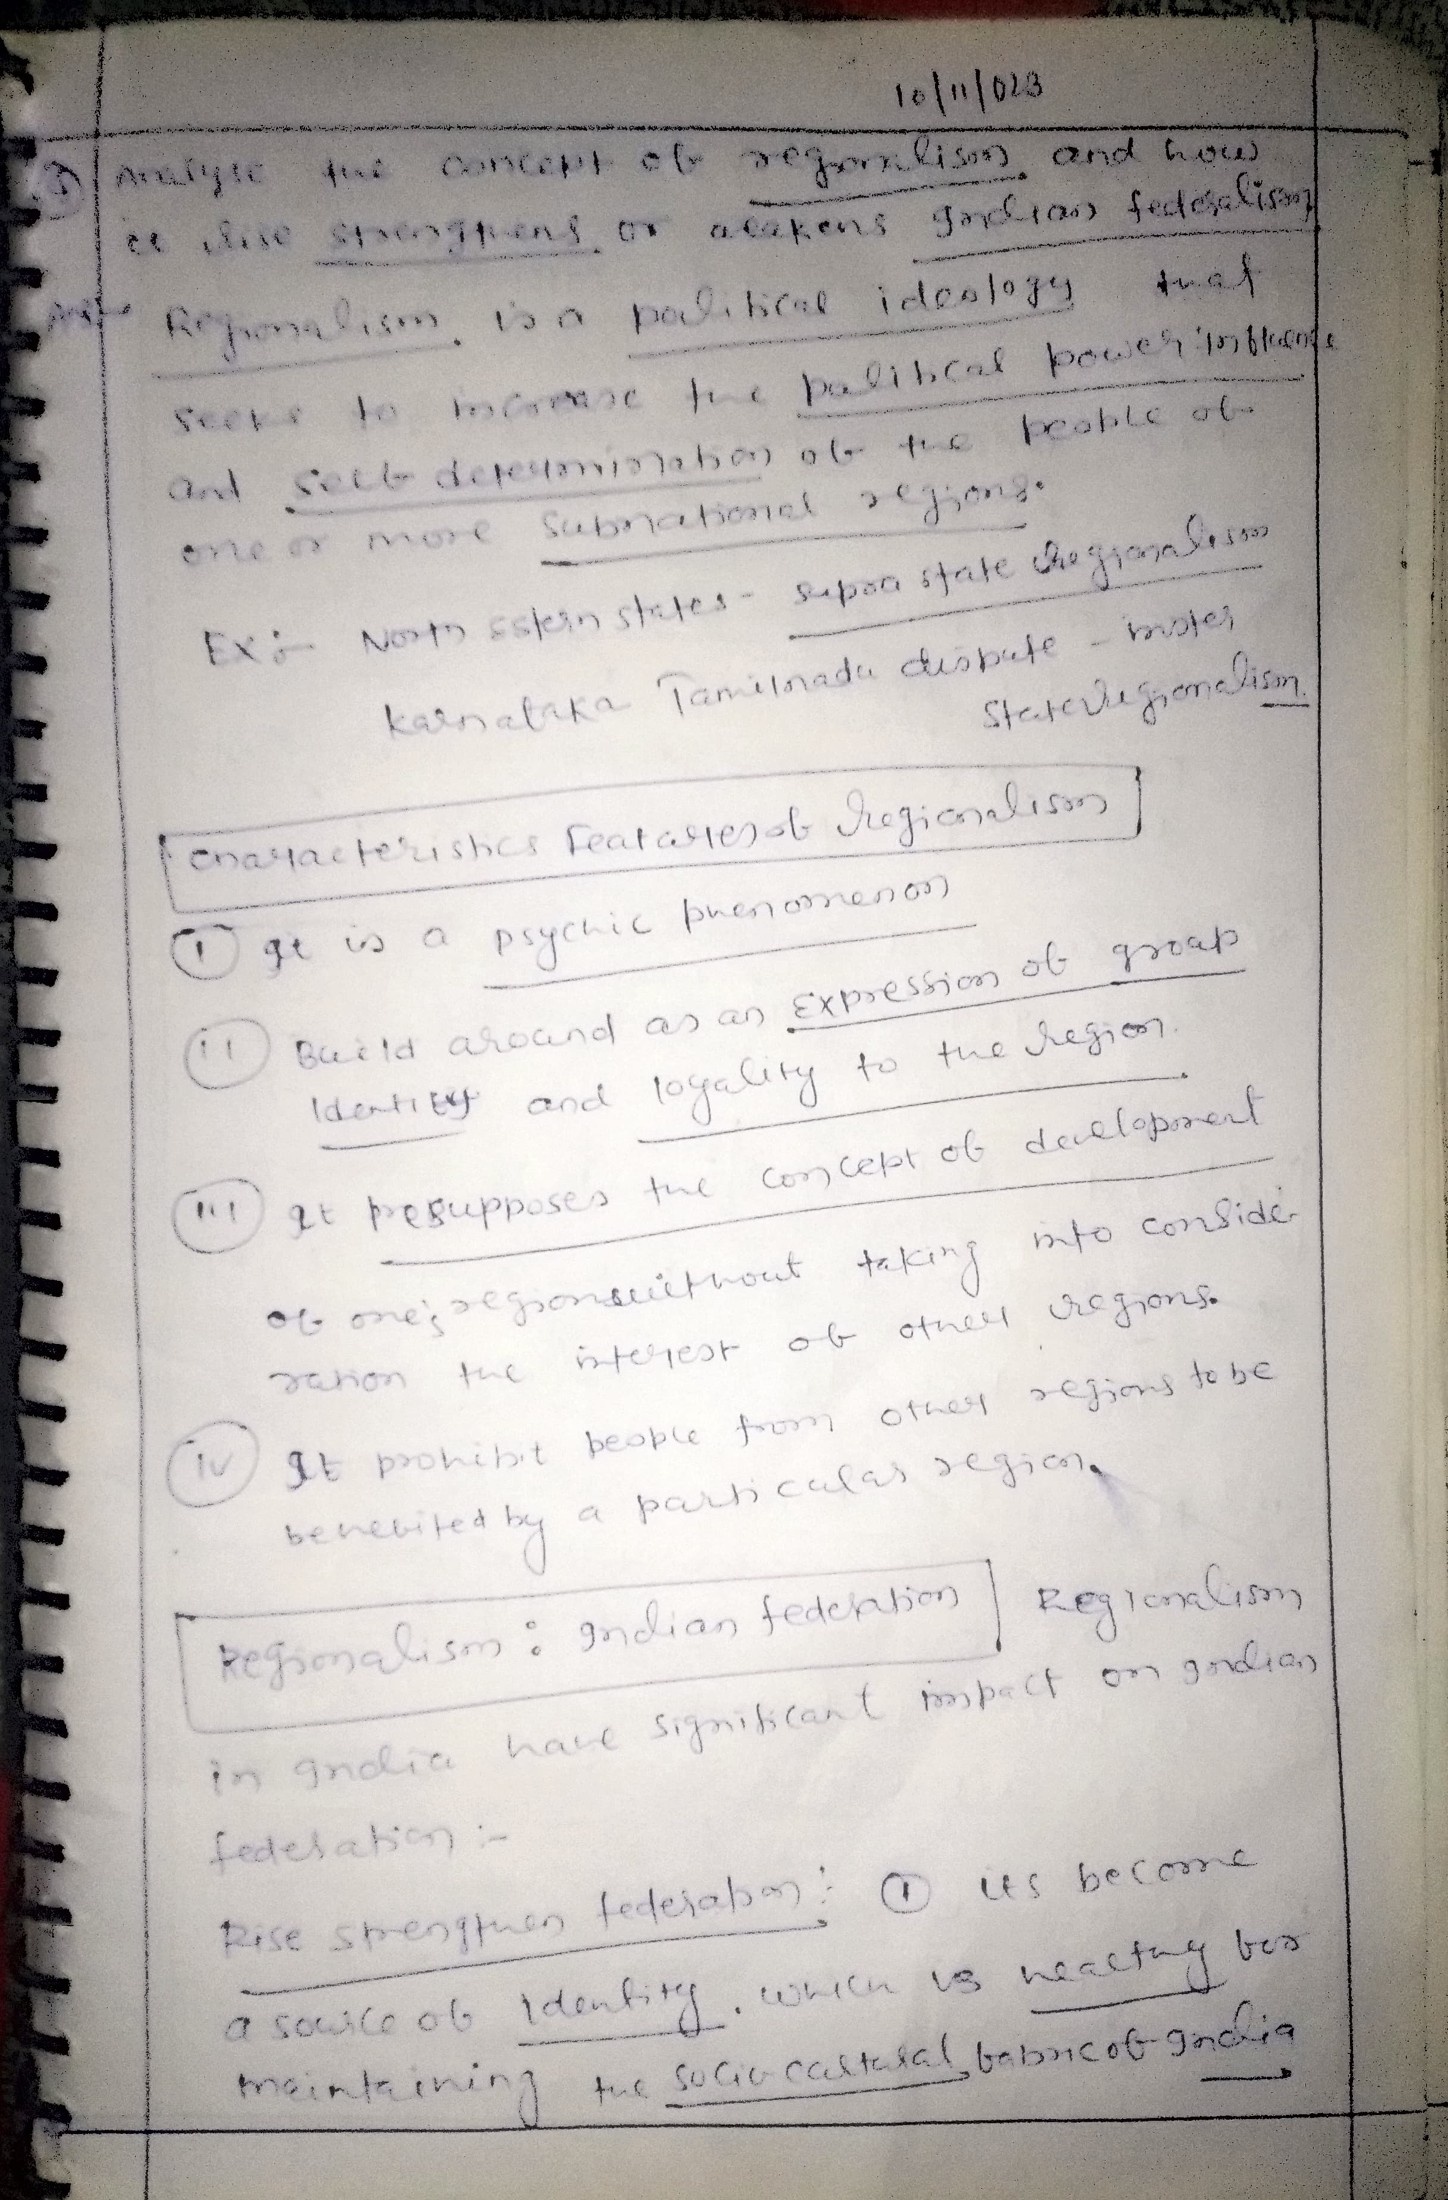 10/11/023
Analyse the concept of regionalism and how
it rise strengthens or weakens Indian federalism
Regionalism is a political ideology that
seeks to increase the political power influence
and self determination of the people of
one or more subnational regions.
Ex:- North Estern states - supra state regionalism
Karnataka Tamilnadu dispute - inter
State regionalism.
characteristics Features of regionalism
I It is a psychic phenomenon
II Build around as an Expression of group
Identity and loyality to the region.
III It presupposes the concept of development
of one's region without taking into conside-
ration the interest of other regions.
IV It prohibit people from other regions to be
benefited by a particular region.
Regionalism : Indian federation Regionalism
in India have significant impact on Indian
federation :-
Rise strengthen federation: I its become
a source of Identity, which is healthy for
maintaining the socio cultural fabric of India